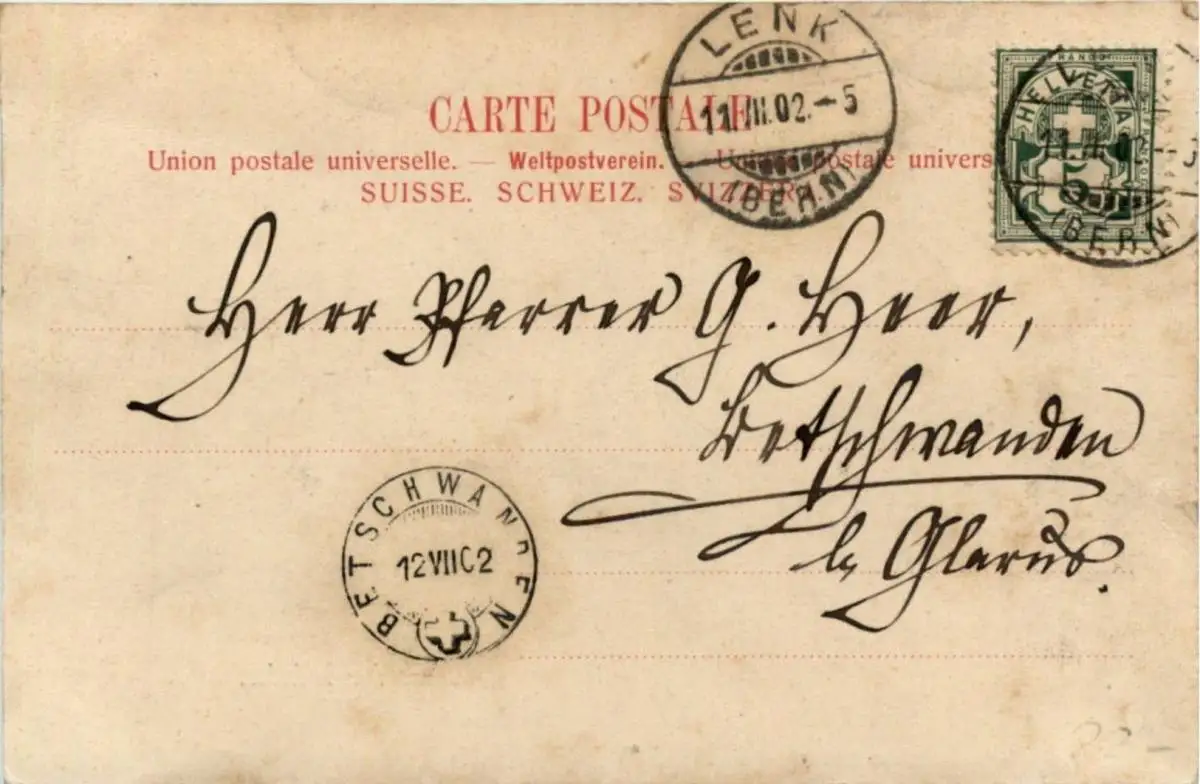 CARTE POSTALE
Union postale universelle. — Weltpostverein. — Unione postale univers
SUISSE. SCHWEIZ. SVIZZERA
LENK
11.VII.02.-5
(BERN)
HELVETIA
(BERN)
Herr Pfarrer G. Heer,
Betschwanden
b/ Glarus.
BETSCHWANDEN
12 VII 02